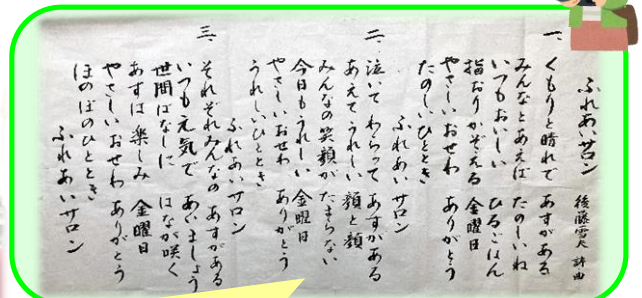 ふれあいサロン
後藤雪夫 詩曲
一、くもりと晴れで あすがある
みんなとあえば たのしいね
いつもおいしい ひるごはん
指おりかぞえる 金曜日
やさしいおせわ ありがとう
たのしいひととき
ふれあいサロン
二、泣いてわらって あすがある
あえてうれしい 顔と顔
みんなの笑顔が たまらない
今日もうれしい 金曜日
やさしいおせわ ありがとう
うれしいひととき
ふれあいサロン
三、それぞれみんなの あすがある
いつも元気で あいましょう
世間ばなしに はなが咲く
あすは楽しみ 金曜日
やさしいおせわ ありがとう
ほのぼのひととき
ふれあいサロン